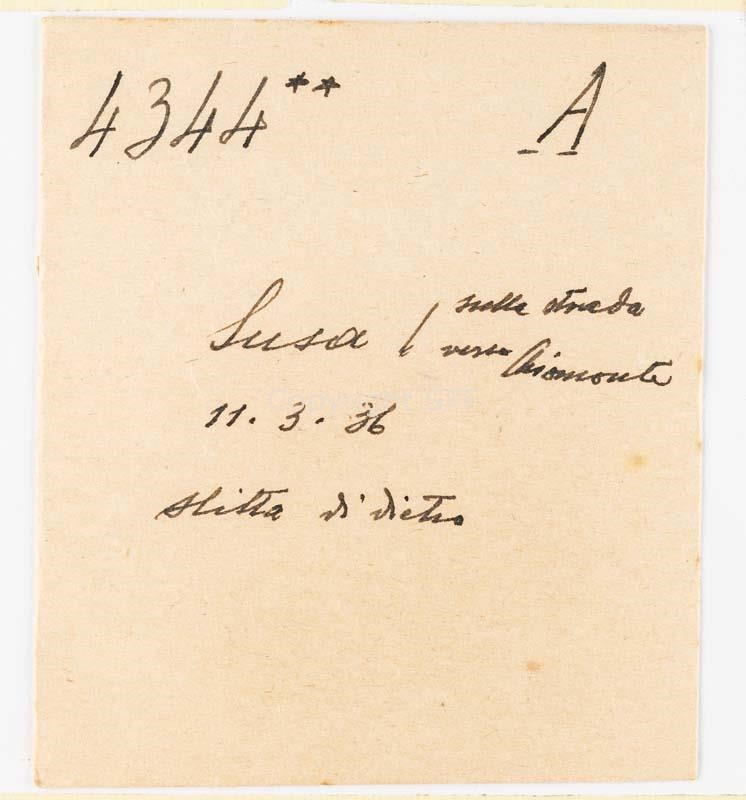 4344** A
Susa / sulla strada
verso Chiomonte
11. 3. 36
slitta di dietro